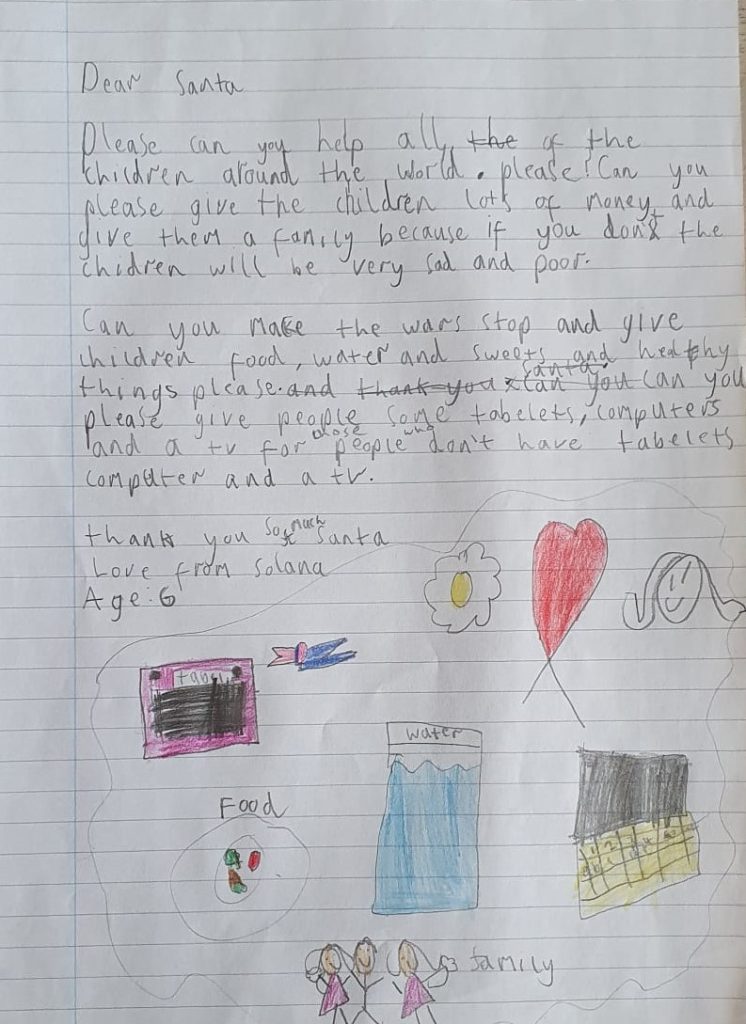 Dear Santa
Please can you help all the of the
children around the world. please! Can you
please give the children lots of money and
give them a family because if you don't the
chidren will be very sad and poor.
Can you make the wars stop and give
children food, water and sweets and healthy
things please. and thank you santa. can you can you
please give people some tabelets, computers
and a tv for those people who don't have tabelets
computer and a tv.
thank you so much santa
Love from Solana
Age: 6
water
Food
family